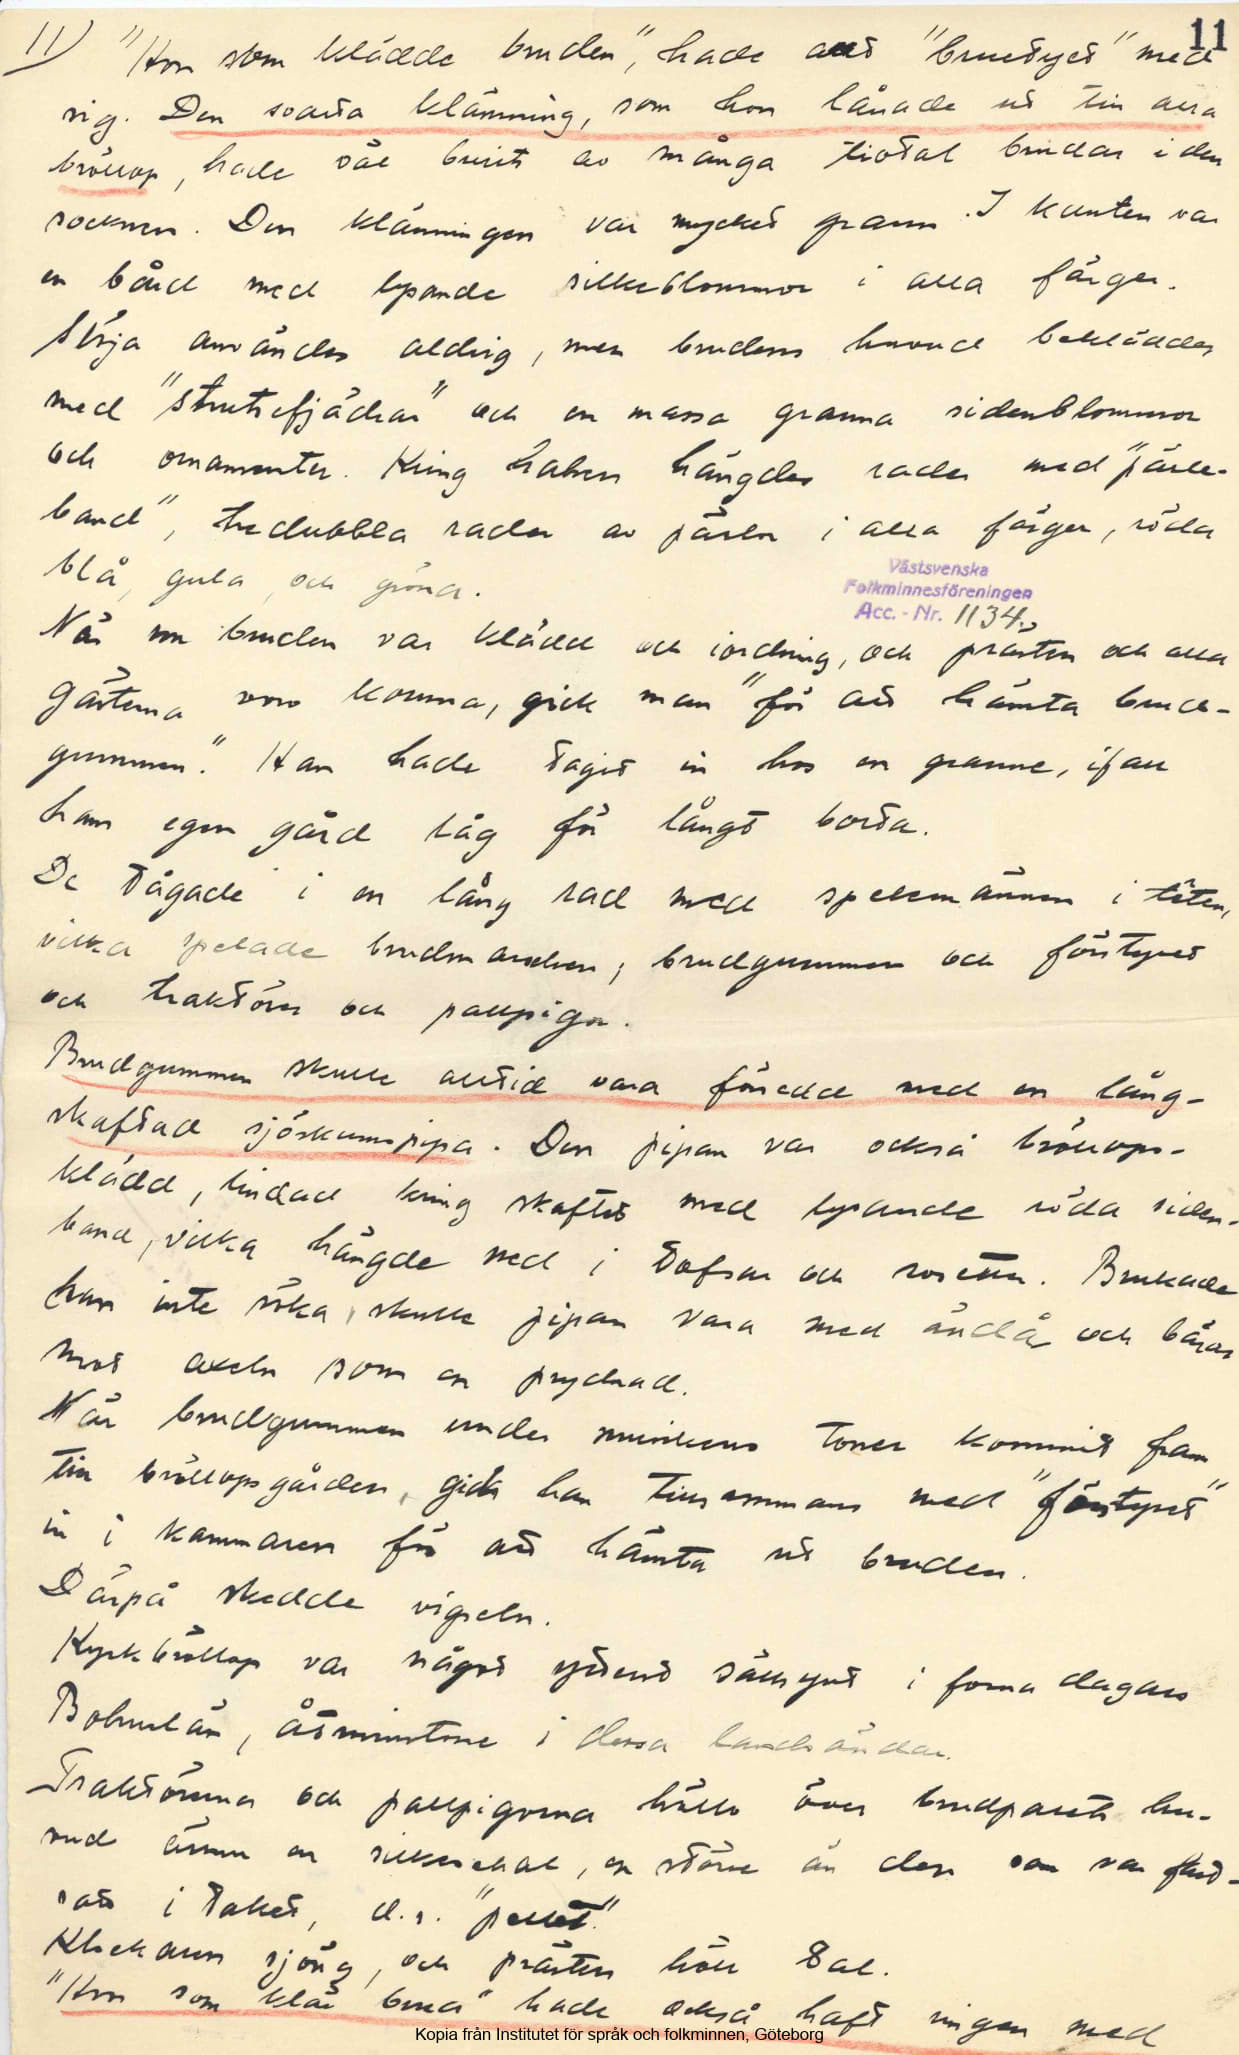 11) "Hon som klädde bruden", hade allt "brudtyet" med
11
sig. Den svarta klänning, som hon lånade ut till alla
bröllop, hade väl burits av många tiotal brudar i den
socknen. Den klänningen var mycket grann. I kanten var
en bård med lysande silkeblommor i alla färger.
Slöja användes aldrig, men brudens huvud bekläddes
med "strutsfjädrar" och en massa granna sidenblommor
och ornamenter. Kring halsen hängdes rader med "pärle-
band", tredubbla rader av pärlor i alla färger, röda
blå, gula och gröna.
Västsvenska
Folkminnesföreningen
Acc. - Nr. 1134.
När nu bruden var klädd och iordning, och prästen och alla
gästerna voro komna, gick man "för att hämta brud-
gummen." Han hade tagit in hos en granne, ifall
hans egen gård låg för långt borta.
De tågade i en lång rad med spelemännen i täten,
vilka spelade brudmarschen, brudgummen och företyet
och traktörer och pallpigor.
Brudgummen skulle alltid vara försedd med en lång-
skaftad sjöskumspipa. Den pipan var också bröllops-
klädd, lindad kring skaftet med lysande röda siden-
band, vilka hängde ned i tofsar och rosetter. Brukade
han inte röka, skulle pipan vara med ändå och bäras
mot axeln som en prydnad.
När brudgummen under musikens toner kommit fram
till bröllopsgården, gick han tillsammans med "företyet"
in i kammaren för att hämta ut bruden.
Därpå skedde vigseln.
Kyrkbröllop var något ytterst sällsynt i forna dagars
Bohuslän, åtminstone i dessa landsändar.
Traktörerna och pallpigorna höllo över brudparets hu-
vud ännu en silkeschal, en större än den som var fast-
satt i taket, d.s. "pellet."
Klockaren sjöng, och prästen höll tal.
"Hon som klär brud" hade också haft ringen med
Kopia från Institutet för språk och folkminnen, Göteborg